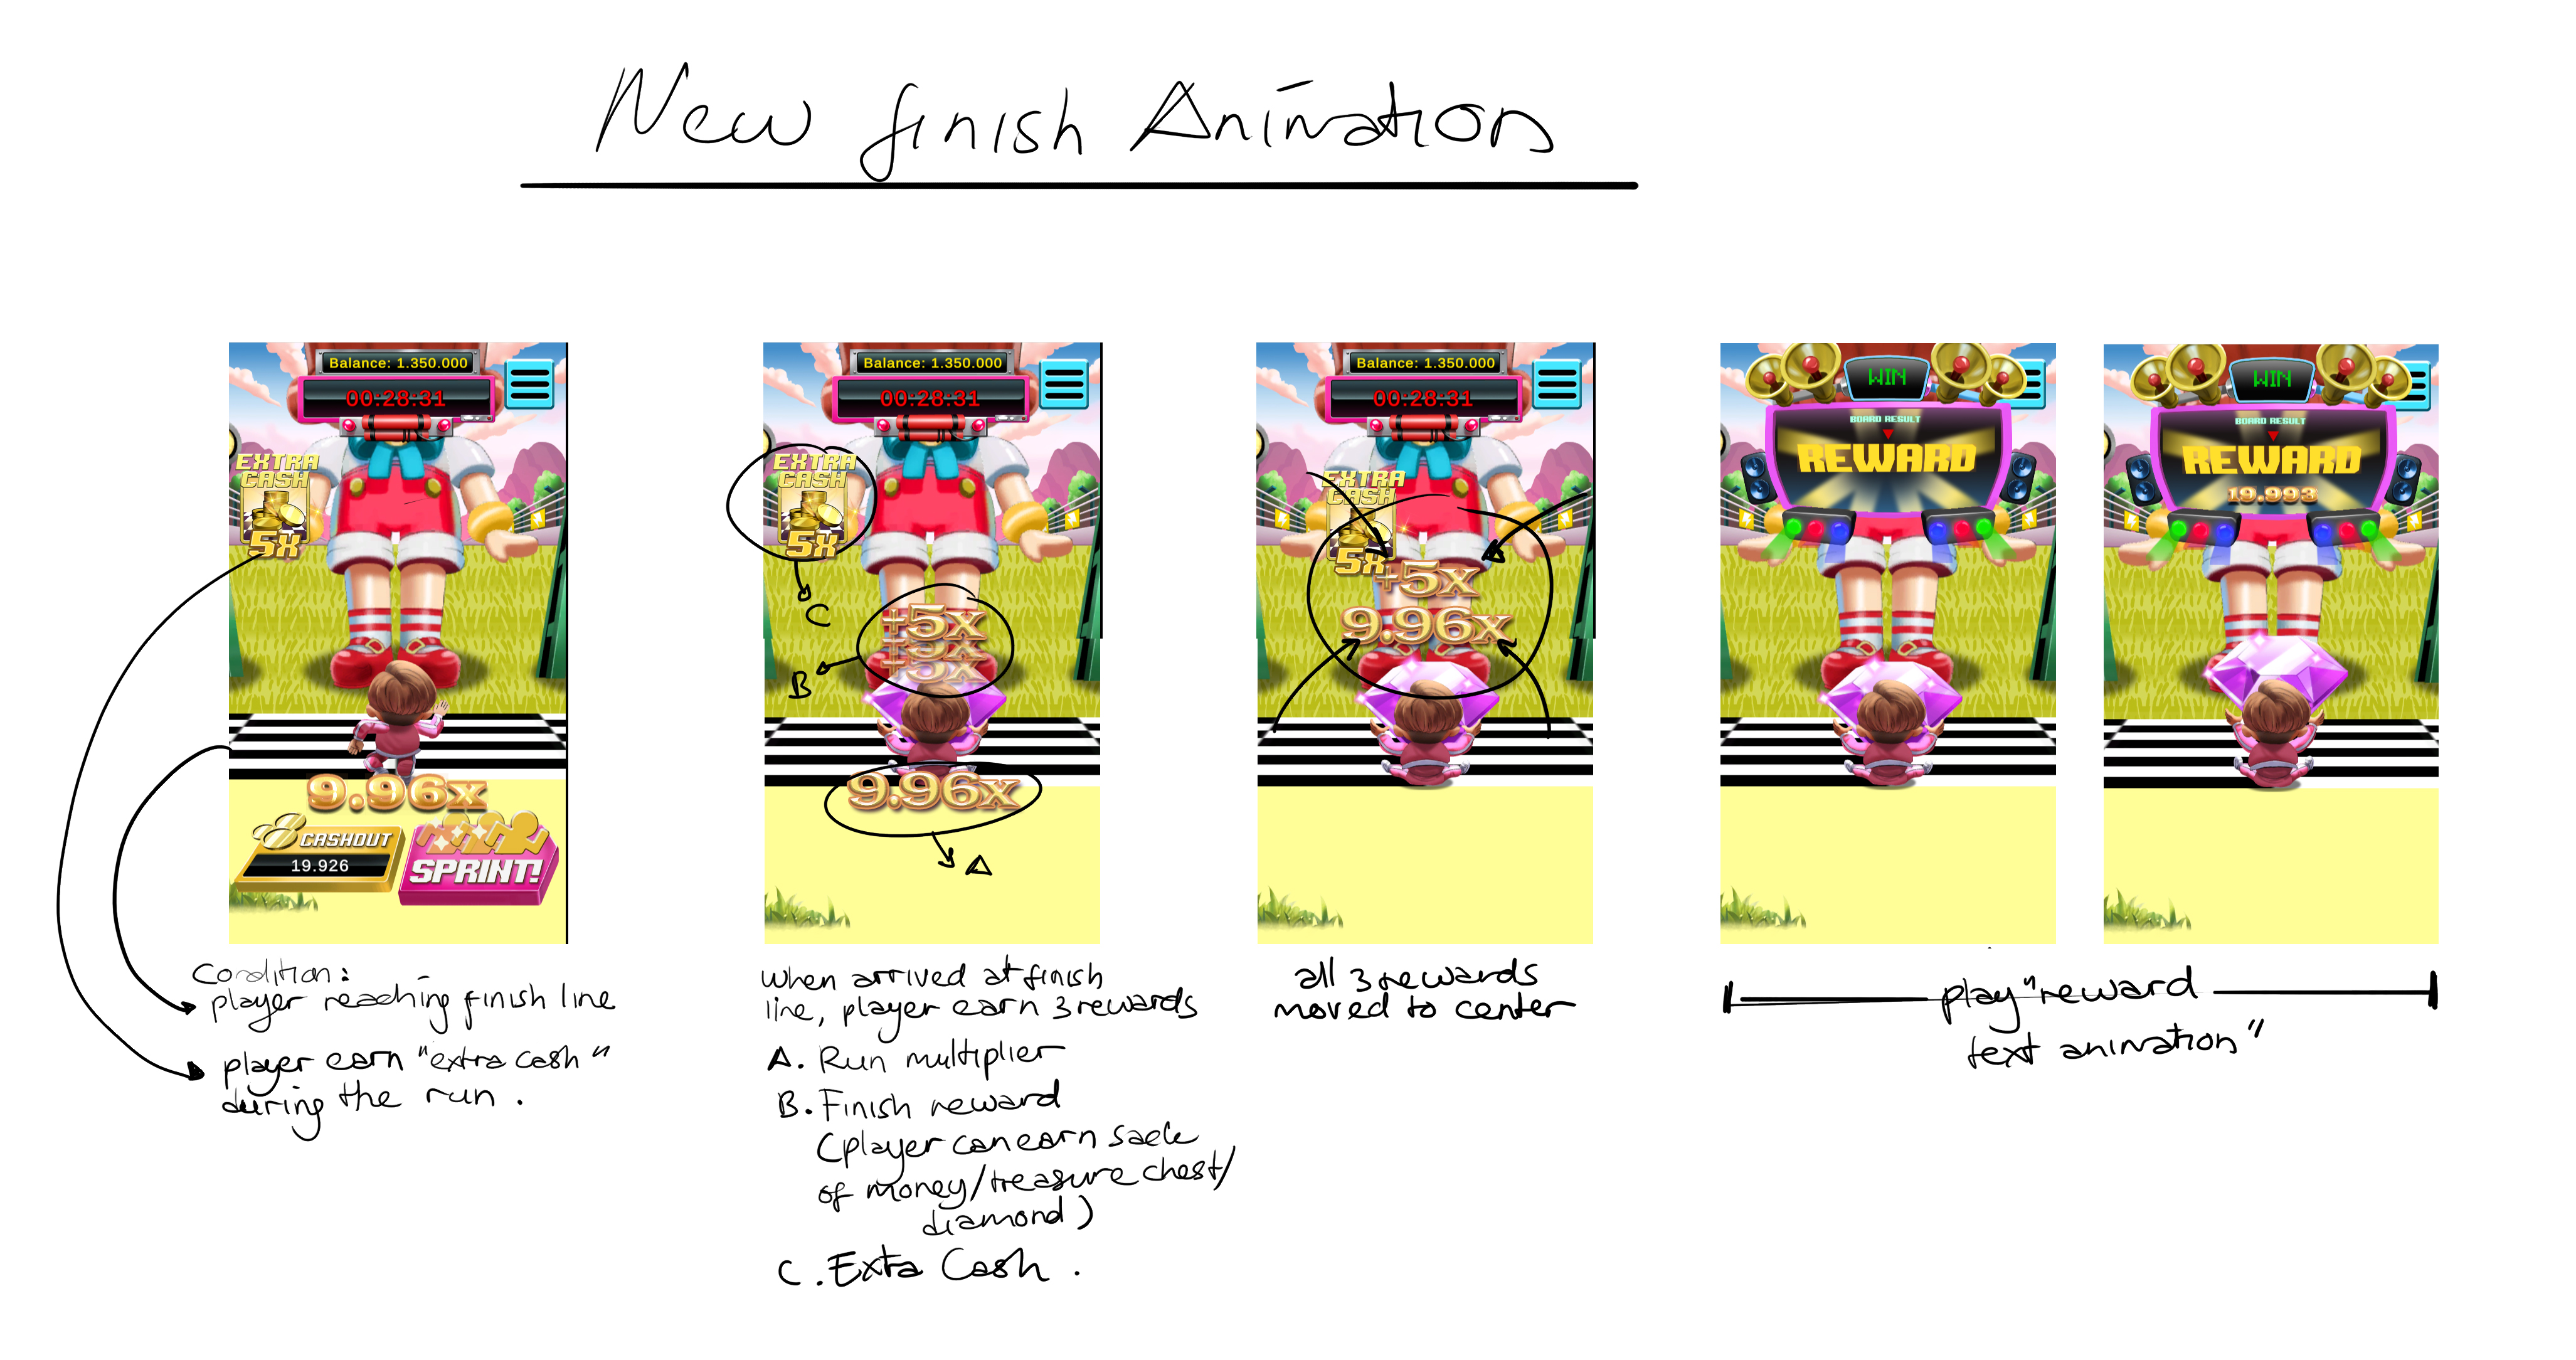 New finish Animation
Balance: 1.350.000
00:28:31
EXTRA
CASH
5X
9.96x
CASHOUT
19.926
SPRINT!
Condition:
player reaching finish line
player earn "extra cash"
during the run.
Balance: 1.350.000
00:28:31
EXTRA
CASH
5X
C
+5x
+5x
+5x
B
9.96x
A
when arrived at finish
line, player earn 3 rewards
A. Run multiplier
B. Finish reward
(player can earn sack
of money/treasure chest/
diamond)
C. Exta Cash.
Balance: 1.350.000
00:28:31
EXTRA
CASH
5X
+5x
9.96x
all 3 rewards
moved to center
WIN
BOARD RESULT
REWARD
WIN
BOARD RESULT
REWARD
19.993
play "reward
text animation"